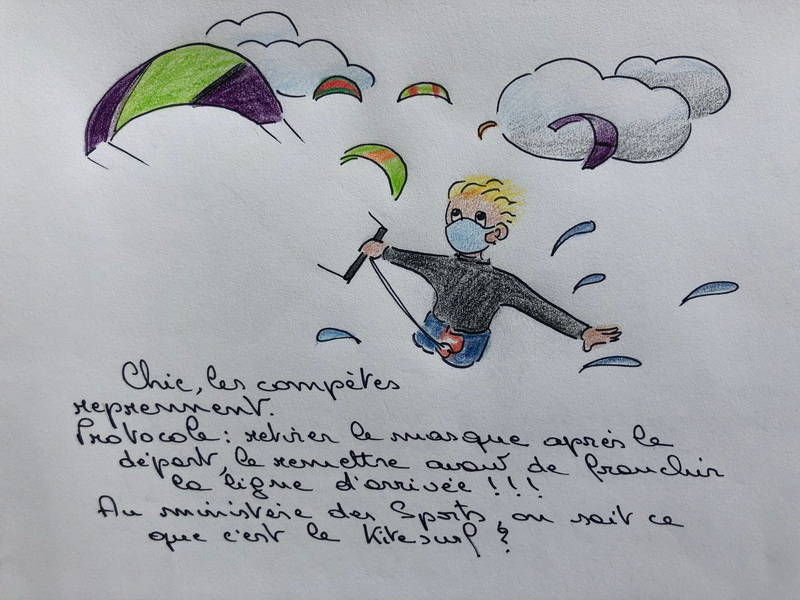 Chic, les compètes
reprennent.
Protocole : retirer le masque après le
départ, le remettre avant de franchir
la ligne d'arrivée !!!
Au ministère des Sports, on sait ce
que c'est le Kitesurf ?